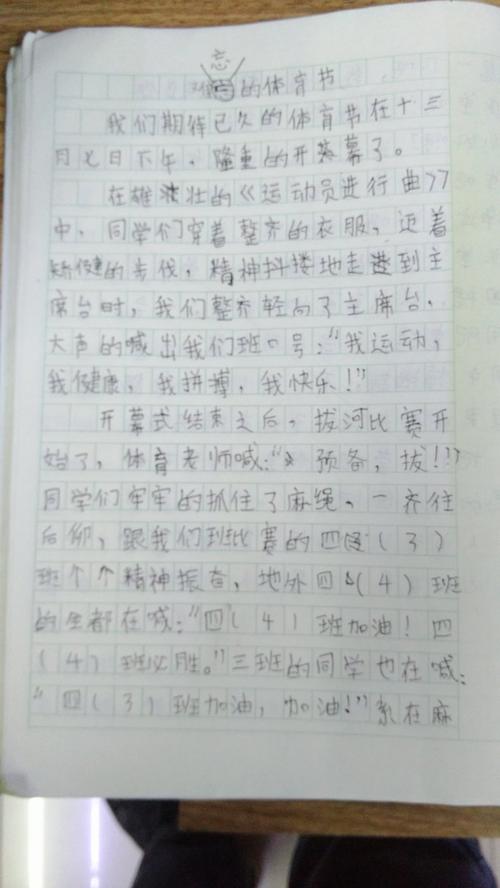 忘
难的体育节
我们期待已久的体育节在十三
月七日下午，隆重的开幕了。
在雄壮的《运动员进行曲》
中，同学们穿着整齐的衣服，迈着
矫健的步伐，精神抖擞地走进到主
席台时，我们整齐转向了主席台，
大声的喊出我们班口号："我运动，
我健康，我拼搏，我快乐！"
开幕式结束之后，拔河比赛开
始了，体育老师喊："预备，拔！"
同学们牢牢的抓住了麻绳，一齐往
后仰，跟我们班比赛的四（3）
班个个精神振奋，地外四（4）班
的生都在喊："四（4）班加油！四
（4）班必胜。"三班的同学也在喊：
"四（3）班加油，加油！"系在麻